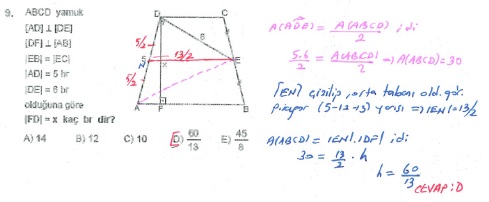 9. ABCD yamuk
[AD] ⊥ [DE]
[DF] ⊥ [AB]
|EB| = |EC|
|AD| = 5 br
|DE| = 6 br
olduğuna göre
|FD| = x kaç br dir?
A) 14 B) 12 C) 10 D) 60/13 E) 45/8
D C
5/2 6
13/2
5 N x E
5/2
A F B
A(ADE) = A(ABCD)/2 idi
5.6/2 = A(ABCD)/2 ⇒ A(ABCD) = 30
[EN] çizilip, orta taban old. gör.
(5-12-13) yarısı ⇒ |EN| = 13/2
A(ABCD) = |EN|.|DF| idi
30 = 13/2 . h
h = 60/13
CEVAP: D